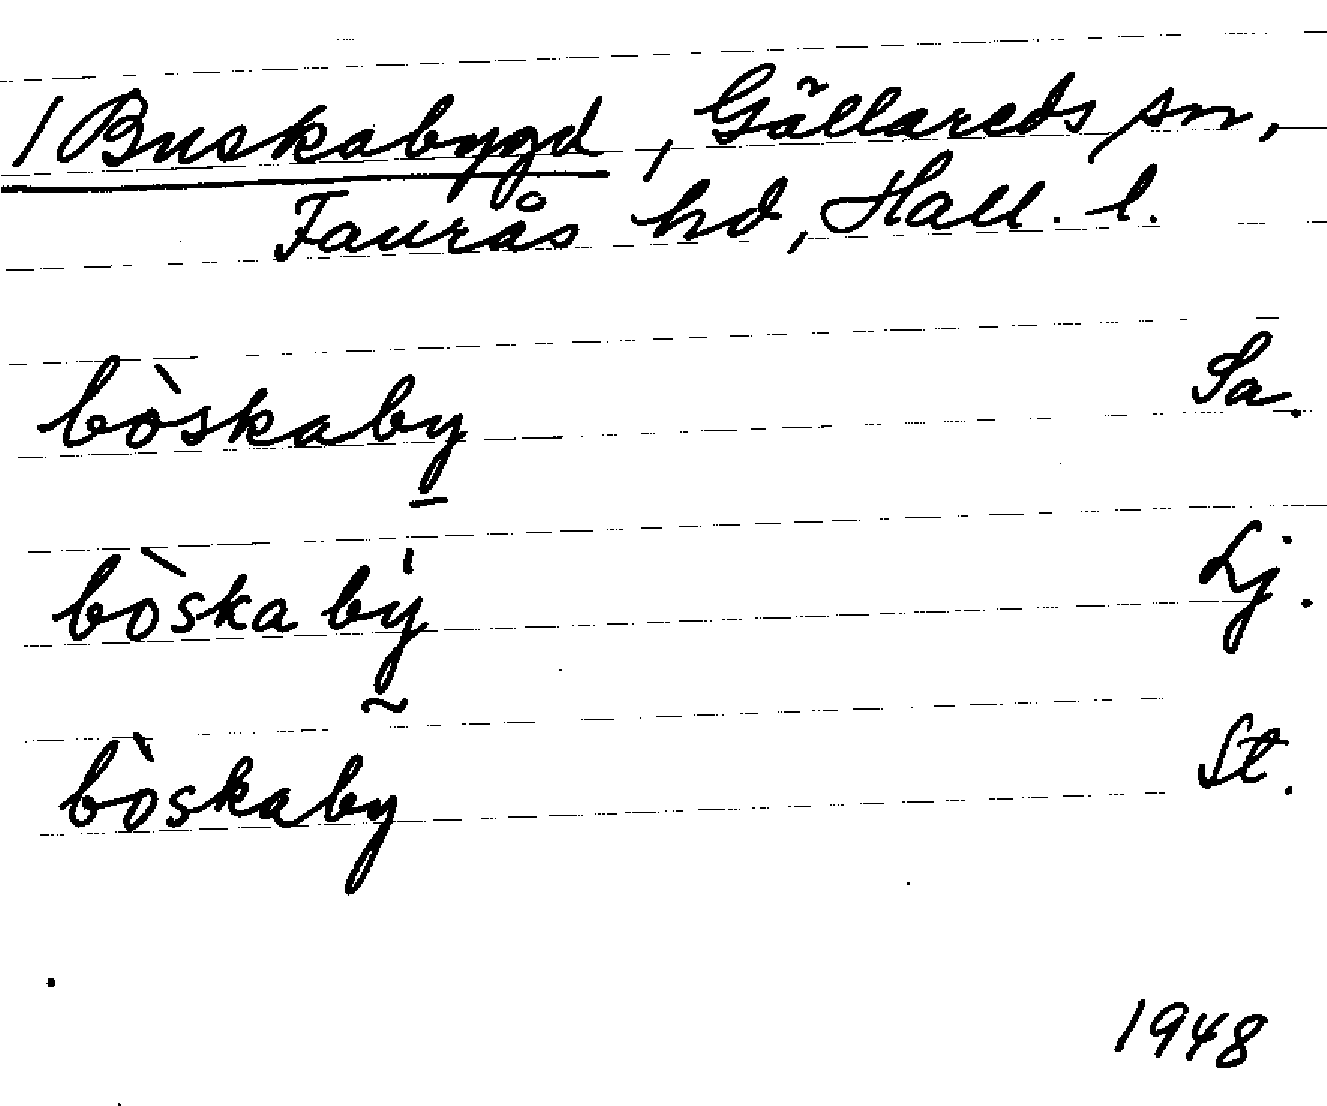 / Buskabygd, Gällareds sn,
Faurås hd, Hall. l.
bòskaby Sa.
bòska bý Lj.
bòskaby St.
1948